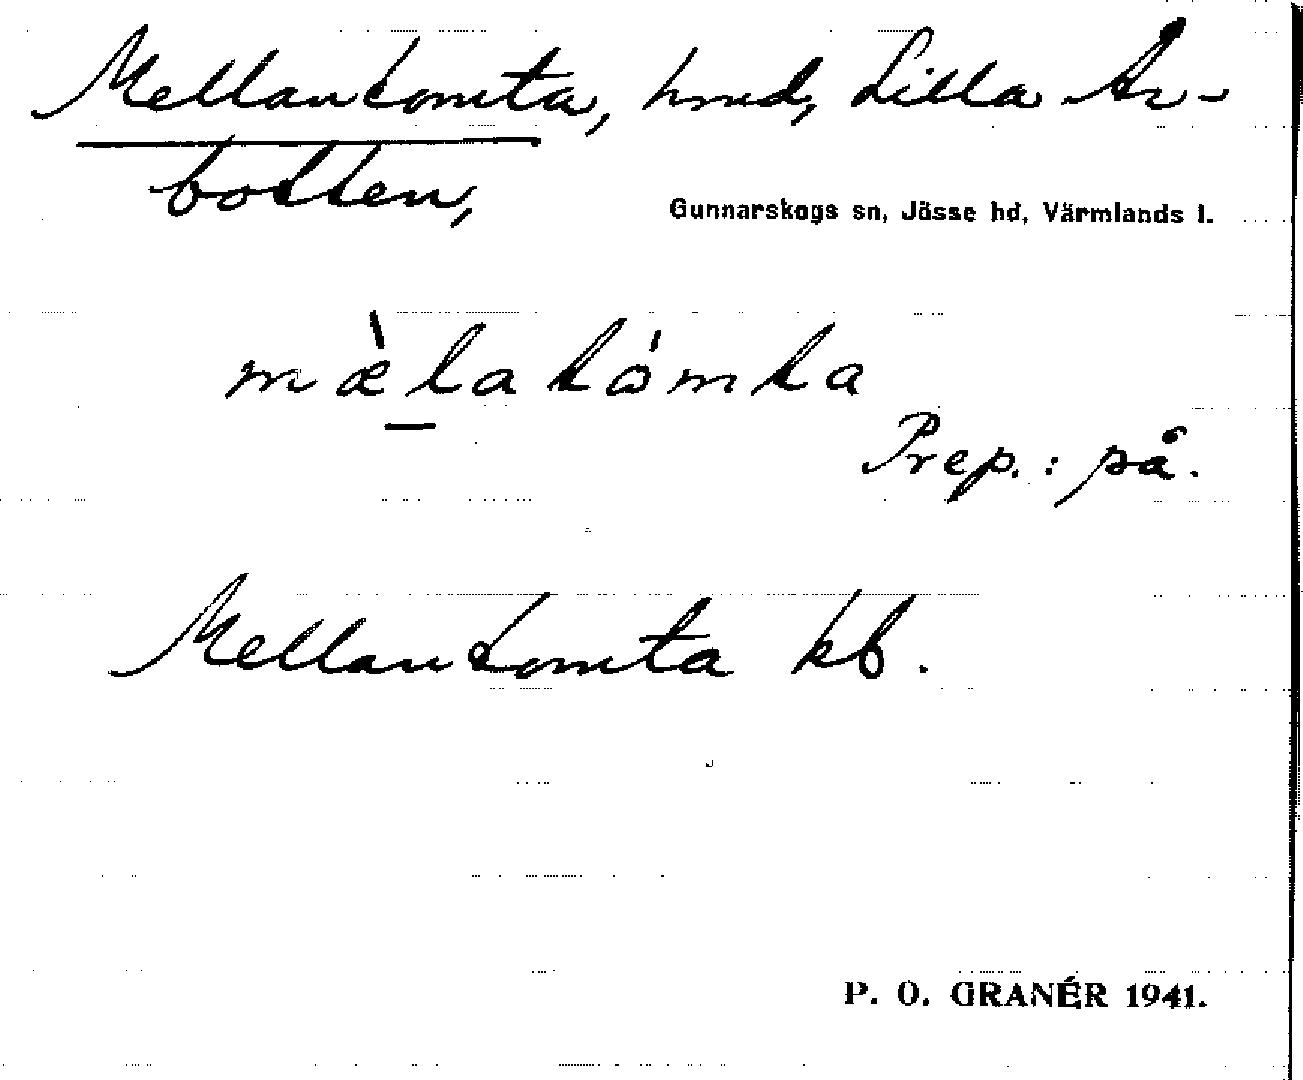 Mellantomta, hmd, Lilla Är-
botten,
Gunnarskogs sn, Jösse hd, Värmlands l.
mæ̀la tɷ́mta
Prep.: på.
Mellantomta kb.
P. O. GRANÉR 1941.